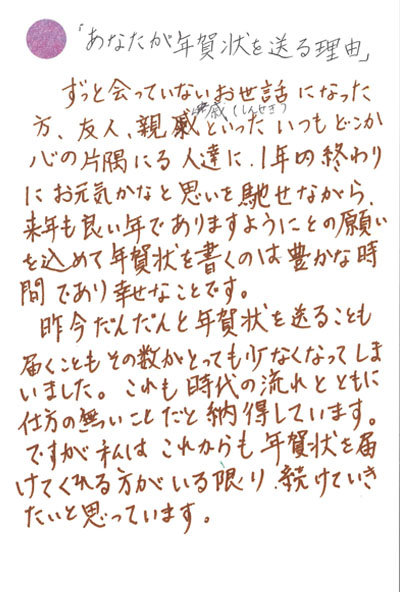 「あなたが年賀状を送る理由」
ずっと会っていないお世話になった
戚(しんせき)
方、友人、親戚といったいつもどこか
心の片隅にる人達に、1年の終わり
にお元気かなと思いを馳せながら、
来年も良い年でありますようにとの願い
を込めて年賀状を書くのは豊かな時
間であり幸せなことです。
昨今だんだんと年賀状を送ることも
届くこともその数がとっても少なくなってしま
いました。これも時代の流れとともに
仕方の無いことだと納得しています。
ですが私はこれからも年賀状を届
けてくれる方がいる限り、続けていき
たいと思っています。